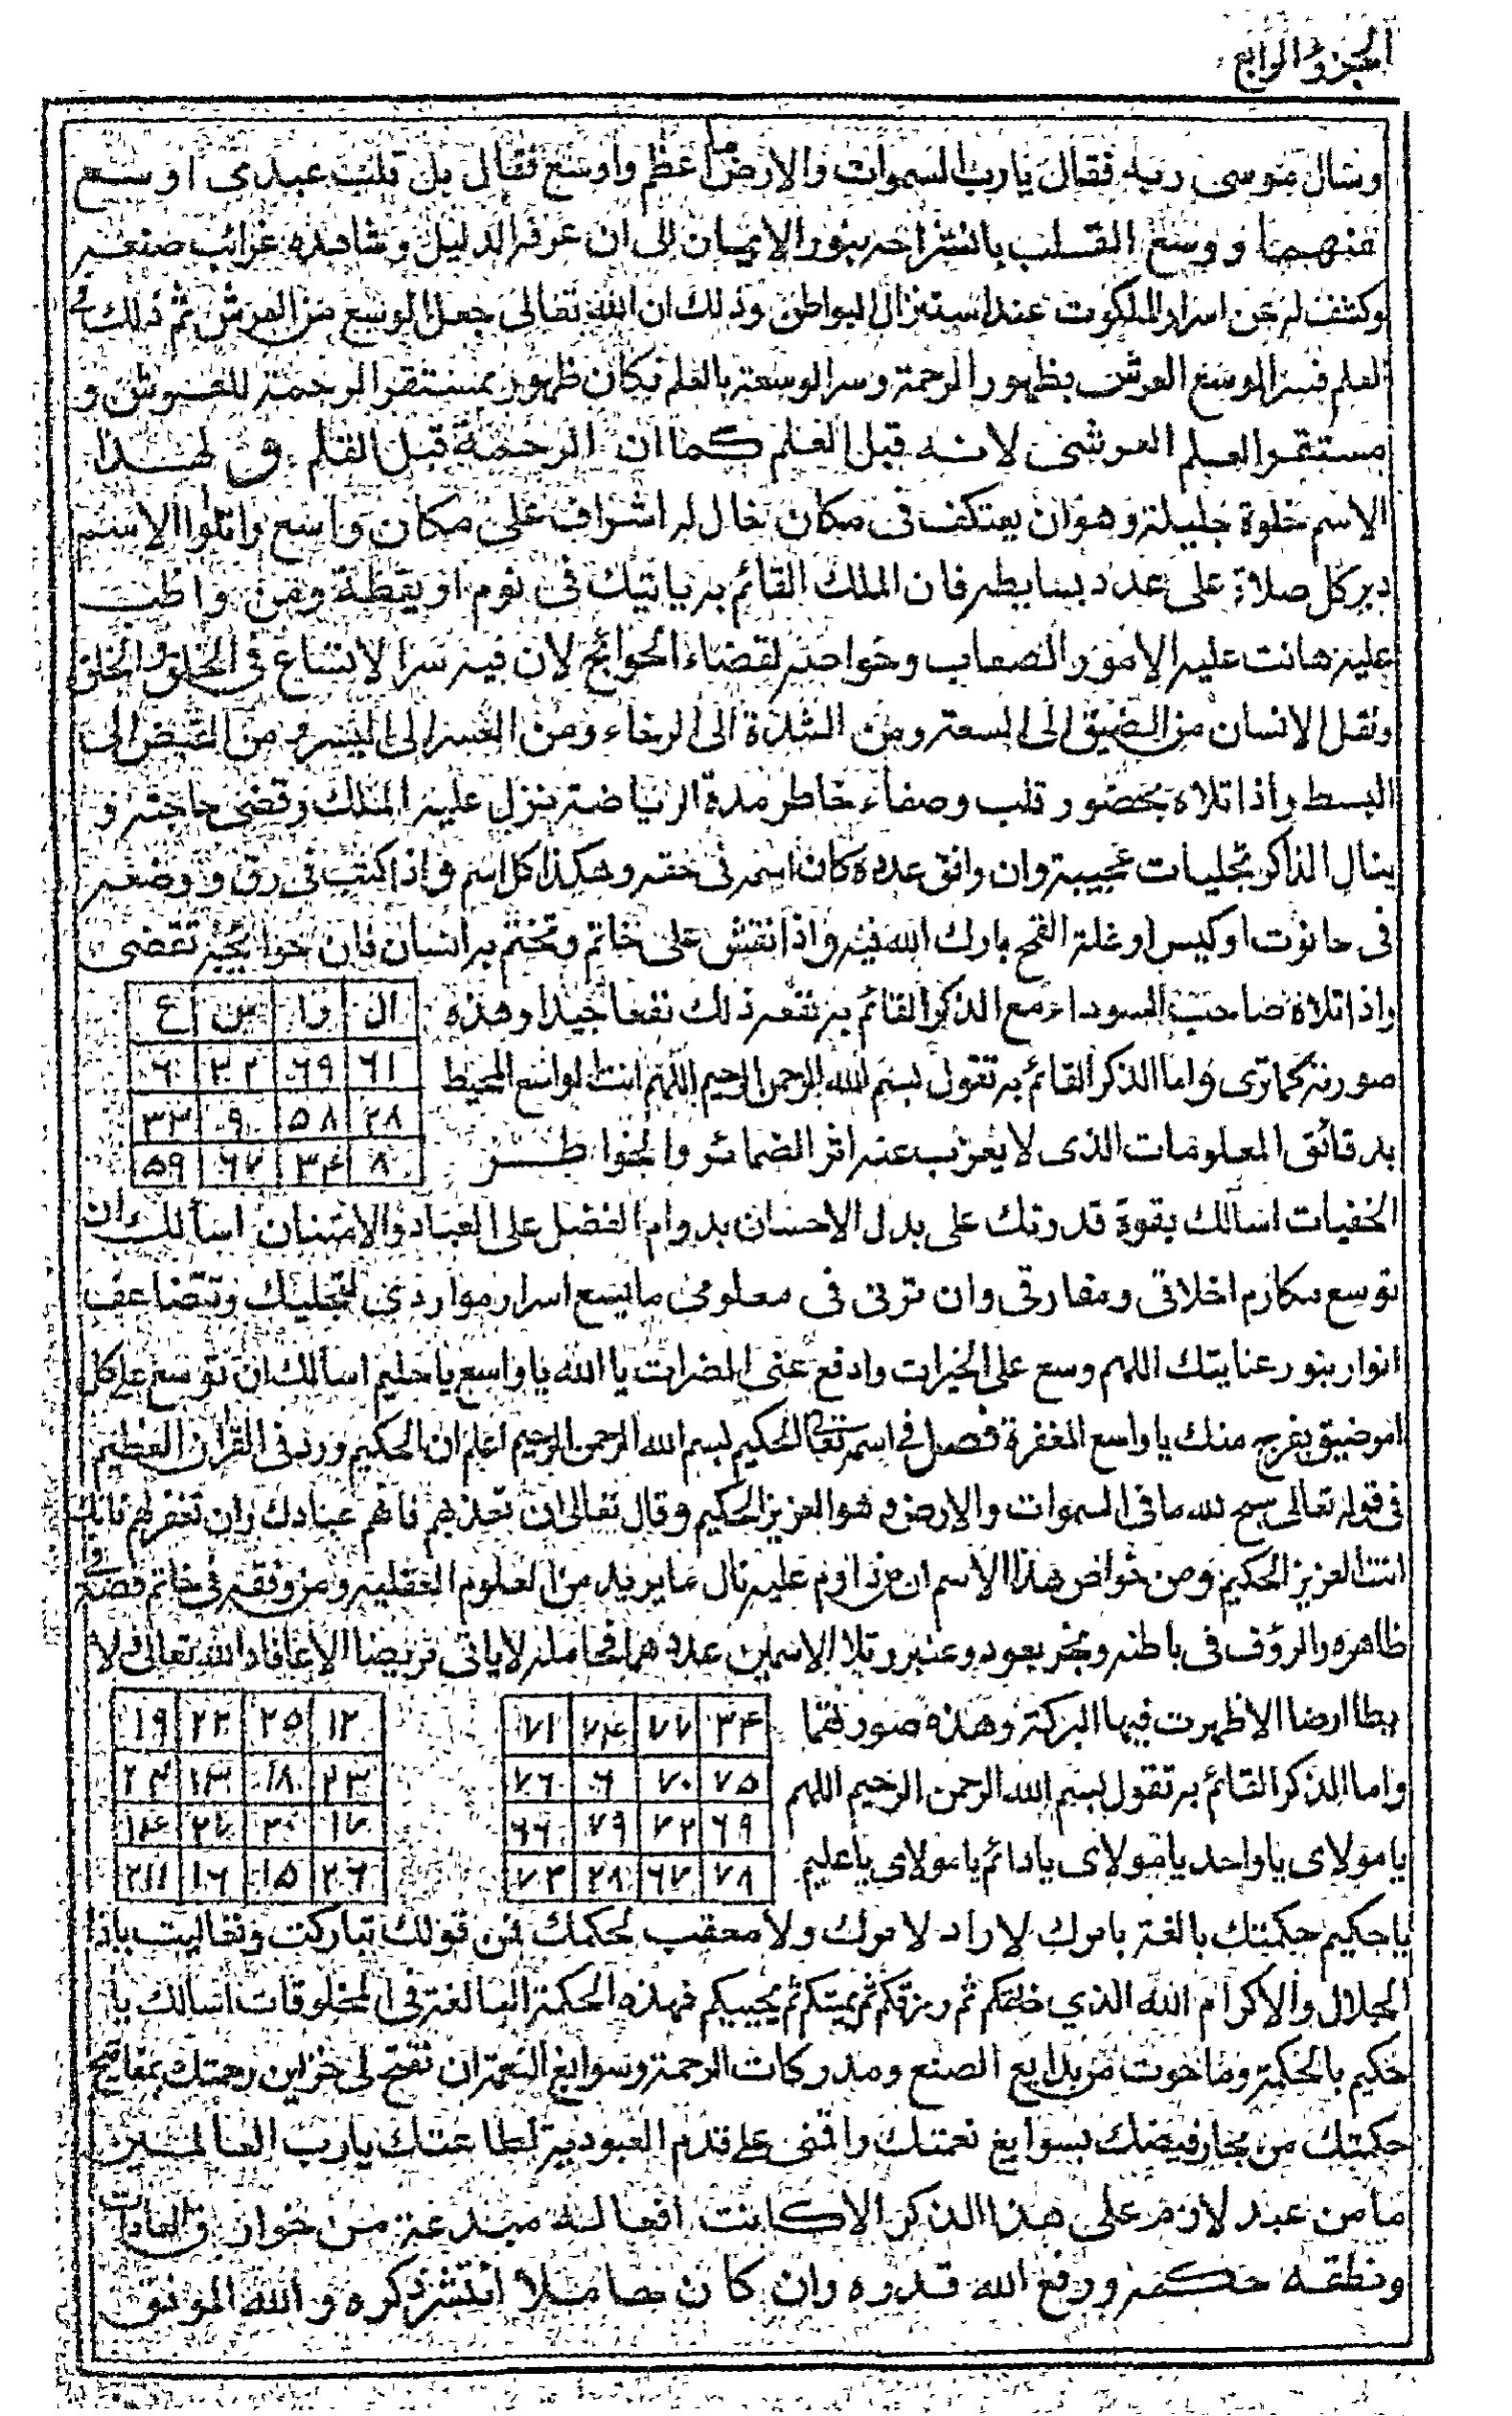 الجزؤ الرابع
وسأل موسى ربه فقال يا رب السموات والارض اعظم واوسع فقال بل قلب عبدى اوسع
منهما ووسع القلب بانشراحه بنور الايمان الى ان عرف الدليل وشاهده غرائب صنعه
وكشف له عن اسرار الملكوت عند استنزال البواطن وذلك ان الله تعالى جعل الوسع من العرش ثم ذلك
العلم فسر الوسع العرش بظهور الرحمة وسر الوسعة بالعلم فكان ظهور مستقر الرحمة للعرش و
مستقر العلم العرشى لانه قبل العلم كما ان الرحمة قبل القلم و لهذا
الاسم خلوة جليلة وهو ان يعتكف فى مكان خال له اشراف على مكان واسع واتلوا الاسم
دبر كل صلاة على عدد بسايطه فان الملك القائم به ياتيك فى نوم او يقظة ومن واظب
عليه هانت عليه الامور الصعاب وخواصه لقضاء الحوائج لان فيه سر الاتساع فى الخلق والخلق
ونقل الانسان من الضيق الى السعة ومن الشدة الى الرخاء ومن العسر الى اليسر ومن القبض الى
البسط واذا تلاه بحضور قلب وصفاء خاطر مدة الرياضة نزل عليه الملك وقضى حاجته و
ينال الذاكر تجليات عجيبة وان وافق عدده كان اسمه فى حقه وهكذا كل اسم واذا كتب فى رق ووضعه
فى حانوت او كيس او غلة القمح بارك الله فيه واذا نقش على خاتم وتختم به انسان فان حوائجه تقضى
واذا تلاه صاحب السوداء مع الذكر القائم به نفعه ذلك نفعا جيدا وهذه
ال وا س ع
صورته كما ترى واما الذكر القائم به تقول بسم الله الرحمن الرحيم اللهم انت الواسع المحيط
٦١ ٦٩ ٣٢ ٦
٢٨ ٥٨ ٩ ٣٣
بدقائق المعلومات الذى لا يعزب عنه اثر الضمائر والخواطر
٨ ٣٤ ٦٧ ٥٩
الخفيات اسالك بقوة قدرتك على بدل الاحسان بدوام الفضل على العباد والامتنان اسألك ان
توسع مكارم اخلاقى ومفارقى وان ترنى فى معلومى ما يسع اسرار مواردى لتجليك وتتضاعف
انوار بنور عنايتك اللهم وسع على الخيرات وادفع عنى المضرات يا الله يا واسع يا حليم اسالك ان توسع على كل
امر ضيق بفرج منك يا واسع المغفرة فصل فى اسمه تعالى الحكيم بسم الله الرحمن الرحيم اعلم ان الحكيم ورد فى القرآن العظيم
فى قوله تعالى سبح لله ما فى السموات والارض وهو العزيز الحكيم وقال تعالى ان تعذبهم فانهم عبادك وان تغفر لهم فانك
انت العزيز الحكيم ومن خواص هذا الاسم ان من داوم عليه نال ما يريد من العلوم العقلية ومن وفقه فى خاتم فضة و
ظاهره والرؤف فى باطنه وبخر بعود وعنبر وتلا الاسمين عددهما فحامله لا ياتى مريضا الا عافاه الله تعالى ولا
يطا ارضا الا ظهرت فيها البركة وهذه صورتهما
٣٤ ٧٧ ٧٤ ٧١
١٢ ٢٥ ٢٢ ١٩
واما الذكر القائم به تقول بسم الله الرحمن الرحيم اللهم
٧٥ ٧٠ ٦ ٧٦
٢٣ ١٨ ١٣ ٢٤
٦٩ ٧٢ ٧٩ ٦٦
١٧ ٢٠ ٢٧ ١٤
يا مولاى يا واحد يا مولاى يا دائم يا مولاى يا عليم
٧٨ ٦٧ ٢٨ ٧٣
٢٦ ١٥ ١٦ ٢١١
يا حكيم حكمتك بالغة بامرك لا راد لامرك ولا معقب لحكمك فمن قولك تباركت وتعاليت يا ذا
الجلال والاكرام الله الذي خلقكم ثم رزقكم ثم يميتكم ثم يحييكم فهذه الحكمة البالغة فى المخلوقات اسالك يا
حكيم بالحكمة وما حوت من بدايع الصنع ومدركات الرحمة وسوابغ النعم ان تفتح لى خزاين رحمتك بمفاتيح
حكمتك من بحار فيضك بسوابغ نعمتك واقمنى على قدم العبودية لطاعتك يا رب العالمين
ما من عبد لازم على هذا الذكر الا كانت افعاله مبتدعة من خوارق العادات
ونطقه حكمة ورفع الله قدره وان كان خاملا انتشر ذكره والله الموفق